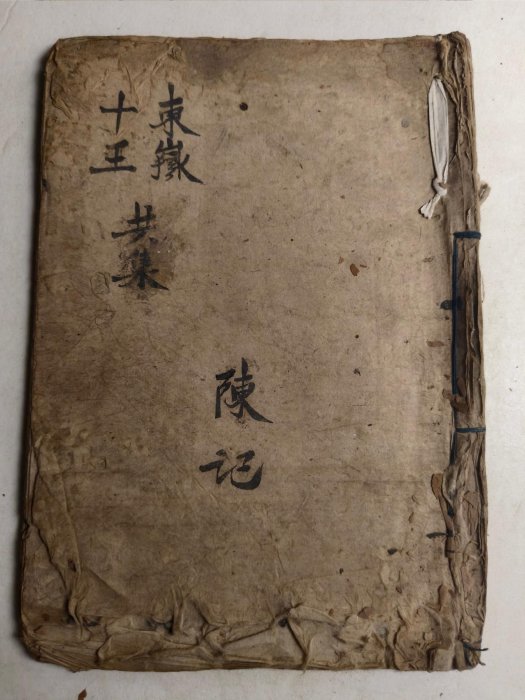 東嶽
十王
共集
陳記